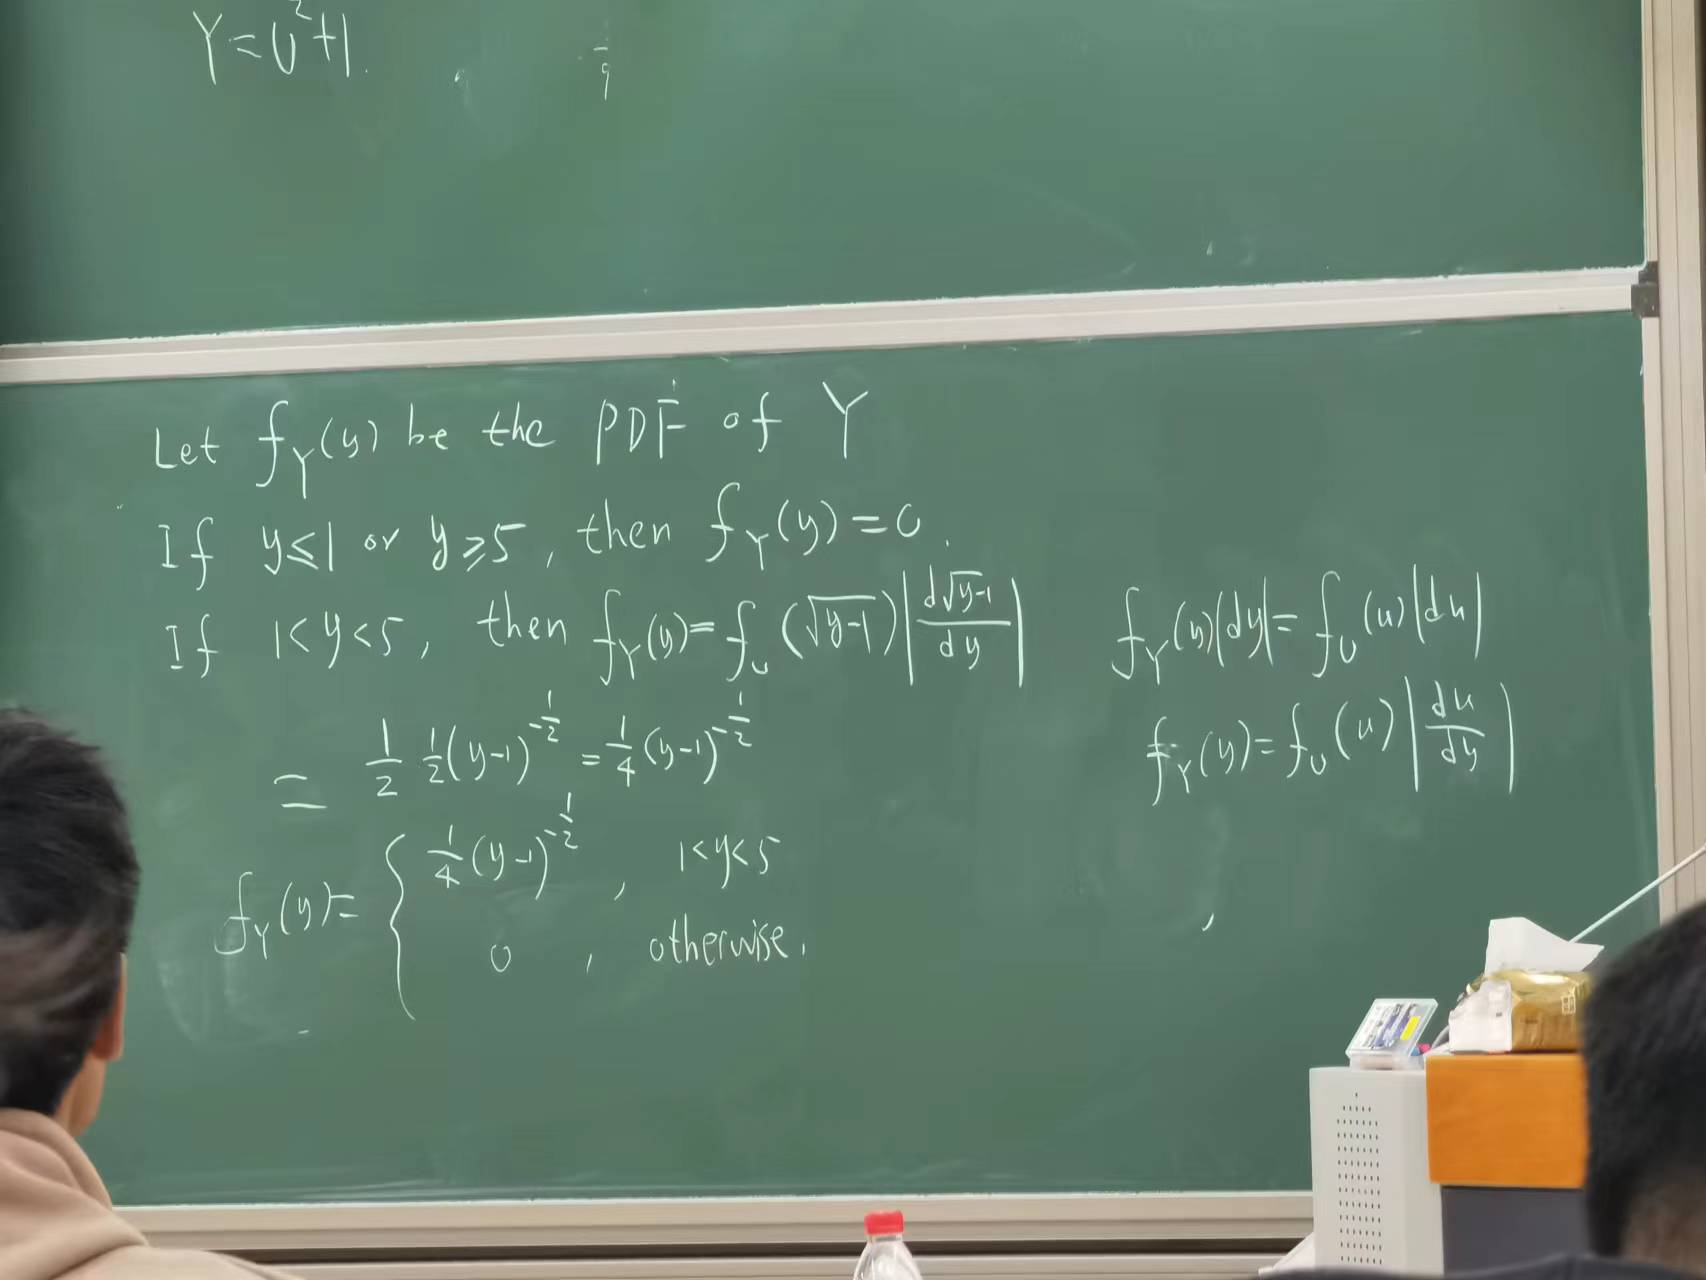 Y=U²+1.
Let f_Y(y) be the PDF of Y
If y≤1 or y≥5, then f_Y(y)=0.
If 1<y<5, then f_Y(y)=f_U(√(y-1))|d√(y-1)/dy|
= 1/2 1/2(y-1)^(-1/2) = 1/4(y-1)^(-1/2)
f_Y(y)= { 1/4(y-1)^(-1/2), 1<y<5
0, otherwise.
f_Y(y)|dy|=f_U(u)|du|
f_Y(y)=f_U(u)|du/dy|